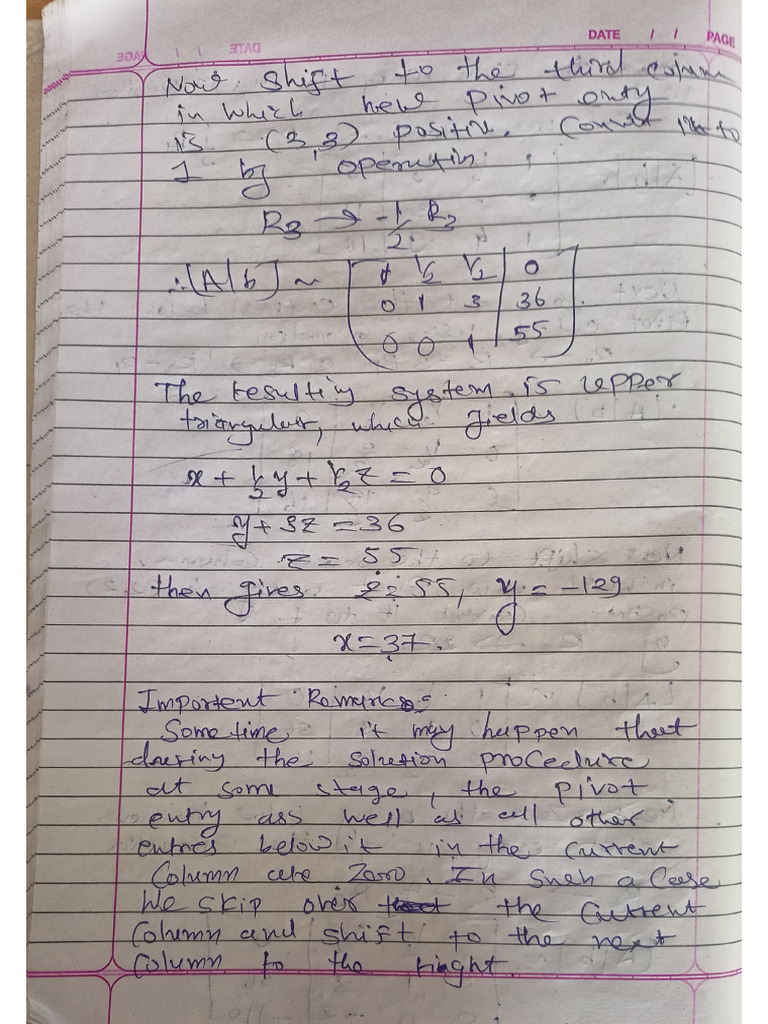 DATE / / PAGE
Now shift to the third column
in which new pivot enty
is (3,3) positin. Convert it to
1 by operation.
R3 → -1/2 R3
∴ [A|b] ~ [ 1 1/2 1/2 | 0
0 1 3 | 36
0 0 1 | 55 ]
The resulting system is upper
triangular, which yields
x + 1/2 y + 1/2 z = 0
y + 3z = 36
z = 55
then gives z = 55, y = -129
x = 37.
Important Remarks :
Some time it may happen that
during the solution procedure
at some stage, the pivot
entry ass well as all other
entries below it in the current
Column are Zero. In such a Case
We skip over the current
Column and shift to the next
Column to the rignht.